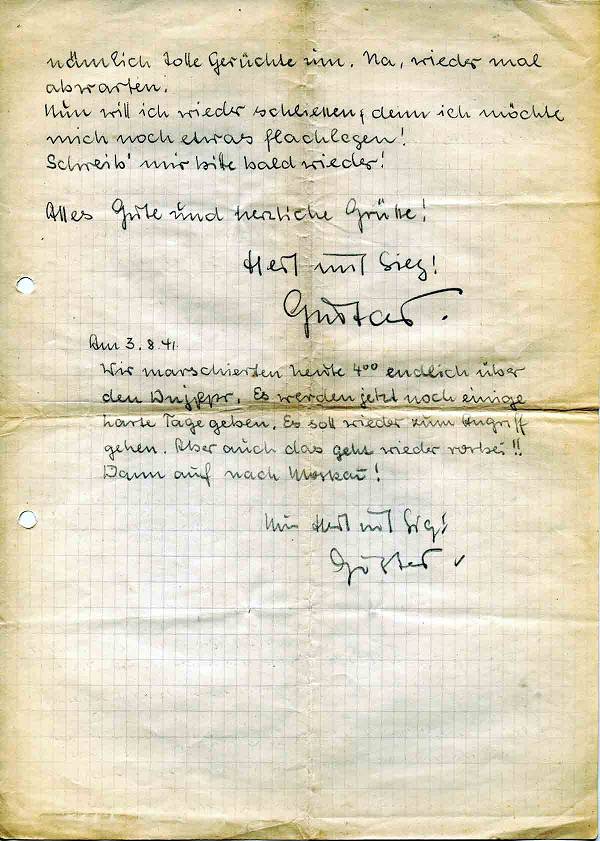 nämlich tolle Gerüchte um. Na, wieder mal
abwarten.
Nun will ich wieder schliessen, denn ich möchte
mich noch etwas flachlegen!
Schreib' mir bitte bald wieder!
Alles Gute und herzliche Grüße!
Heil und Sieg!
Gustav.
Am 3.8.41
Wir marschierten heute 4⁰⁰ endlich über
den Dnjepr. Es werden jetzt noch einige
harte Tage geben. Es soll wieder zum Angriff
gehen. Aber auch das geht wieder vorbei!!
Dann auf nach Moskau!
Nun Heil und Sieg!
Gustav